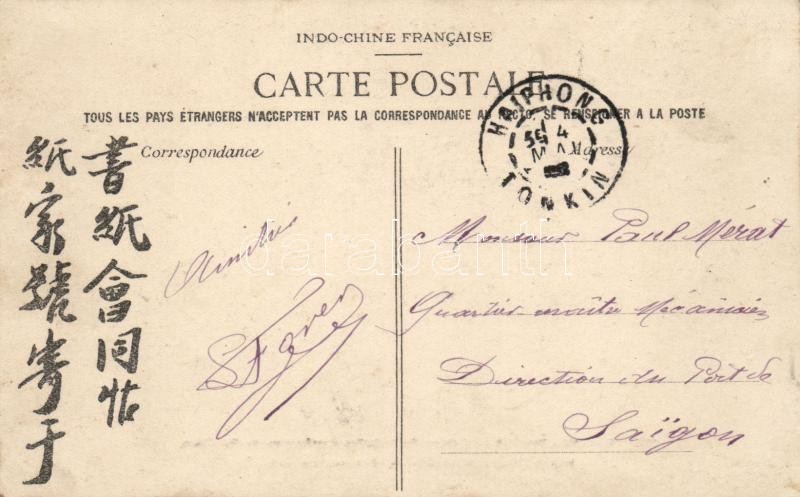 INDO-CHINE FRANÇAISE
CARTE POSTALE
TOUS LES PAYS ÉTRANGERS N'ACCEPTENT PAS LA CORRESPONDANCE AU RECTO, SE RENSEIGNER A LA POSTE
Correspondance
Adresse
HAIPHONG
4
TONKIN
書紙會同帖
紙家號寄于
Amitié
Monsieur Paul Mérat
Quartier maître Mécanicien
Direction du Port de
Saïgon
darabanth